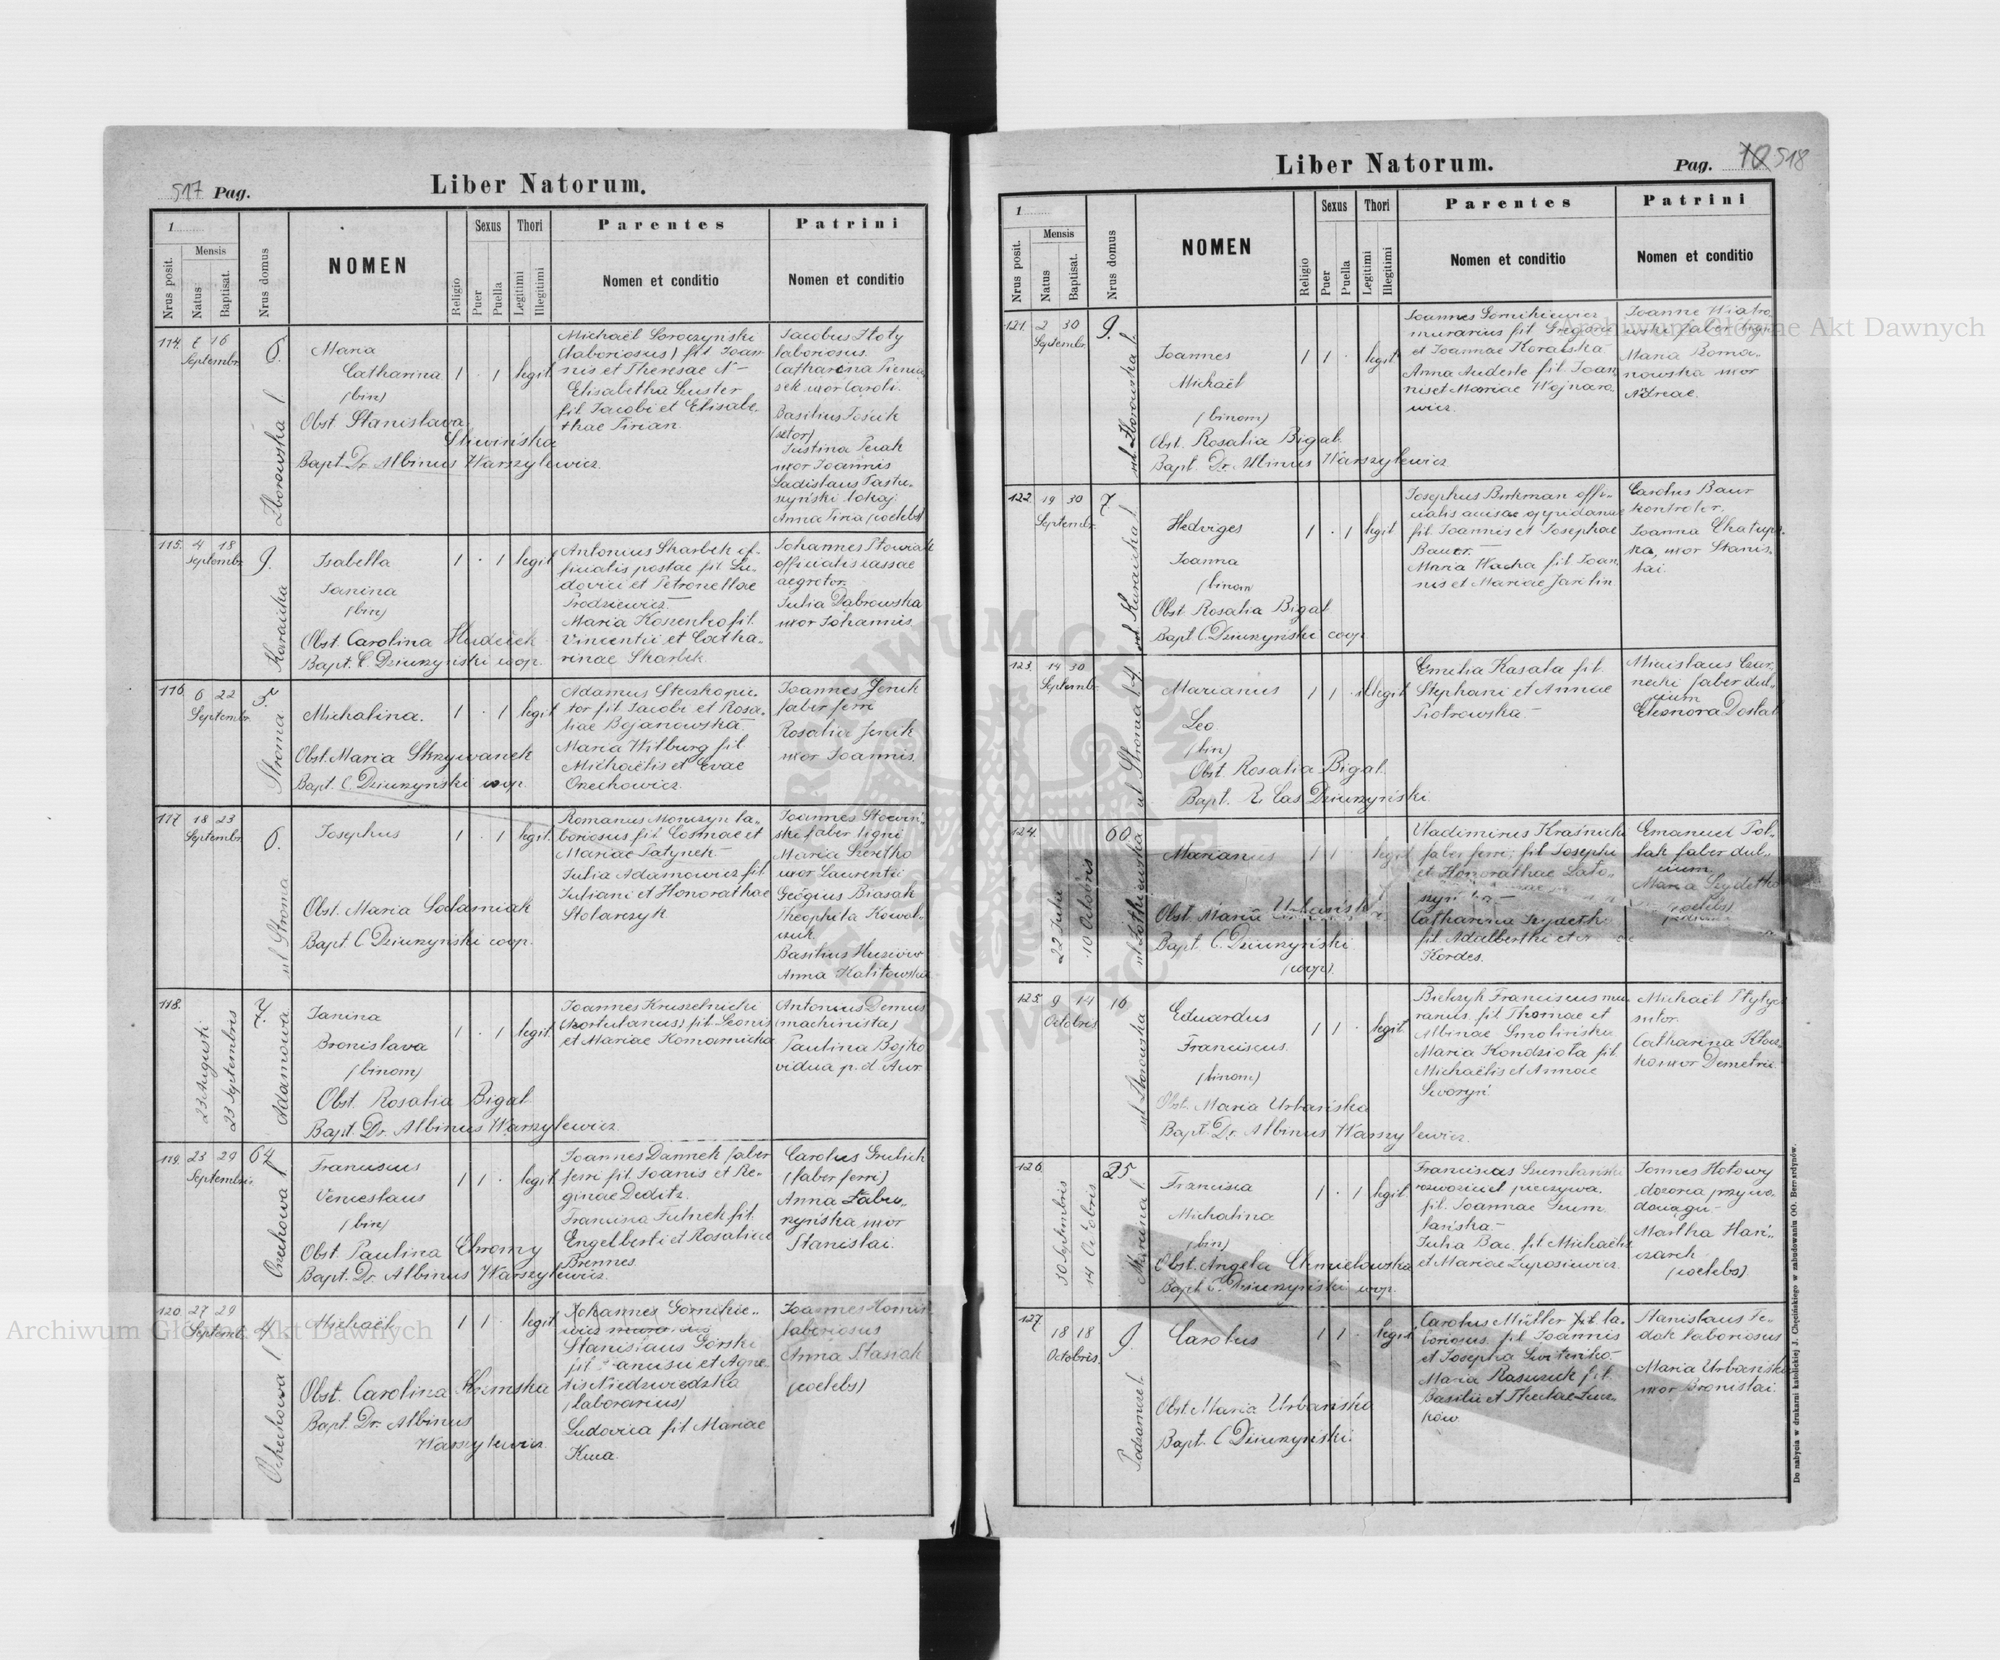 517 Pag.
Liber Natorum.
1
Mensis
Nrus posit.
Natus
Baptisat.
Nrus domus
NOMEN
Religio
Sexus
Puer
Puella
Thori
Legitimi
Illegitimi
Parentes
Nomen et conditio
Patrini
Nomen et conditio
114. 16
Septembr.
6.
Zborowska l.
Maria
Catharina
(bin)
Obst. Stanislava
Sliwińska
Bapt. Dr. Albinus Warszylewicz.
1 1 legit
Michaël Soroczyński
(laboriosus) fil Joan-
nis et Theresae N-
Elisabetha Luster
fil. Jacobi et Elisabe-
thae Tirian.
Jacobus Złoty
laboriosus.
Catharina
uxor Caroli.
Basilius
(sutor)
Justina
uxor Joannis
Ladislaus Pastu-
szyński lokaj
Anna (coelebs)
115. 4 18
Septembr.
9.
Isabella
Janina
(bin)
Obst. Carolina
Bapt. C. Dziurzyński coop.
1 · 1 legit
Antonius Skarbek of-
ficialis postae fil Lu-
dovici et Petronellae
Prodziewicz.
Maria fil.
Vincentii et Catha-
rinae Skarbek.
Johannes
officialis cassae
aegrotor.
Julia Dąbrowska
uxor Johannis.
116 6 22
Septembr.
5.
Stroma
Michalina.
Obst. Maria Skrzywanek
Bapt. C. Dziurzyński coop.
1 · 1 legit
Adamus
fil Jacobi et Rosa-
liae Bojanowska
Maria Wilburg fil
Michaëlis et Evae
Orzechowicz.
Joannes Jenik
faber ferri
Rosalia Jenik
uxor Joannis.
117. 18 23
Septembr.
6.
ul Stroma
Josephus
Obst. Maria
Bapt. C Dziurzyński coop.
1 · 1 legit.
Romanus Monczyn la-
boriosus fil. Cosmae et
Mariae Patynek.
Julia Adamowicz fil
Juliani et Honorathae
Stolarczyk
Joannes
faber ligni
Maria
uxor Laurentii
Geōgius Biasak
Theophila Kowal-
czuk
Basilius
Anna Kalitowska
118.
23 Augusti
23 Septembris
Adamowa
Janina
Bronislava
(binom)
Obst. Rosalia Bigal
Bapt. Dr. Albinus Warszylewicz.
1 · 1 legit.
Joannes Kruszelnicki
(hortulanus) fil. Leonis
et Mariae Komarnicka
Antonius Demus
(machinista)
Paulina Bojko
vidua p. d. Aur.
119. 23 29
Septembris.
64
Orzechowa l
Franciscus
Venceslaus
(bin)
Obst. Paulina Chromy
Bapt. Dr. Albinus Warszylewicz.
1 1 · legit
Joannes Dannek faber
ferri fil. Joanis et Re-
ginae Deditz.
Francisca Fulnek fil.
Engelberti et Rosaliae
Brennes.
Carolus Grulich
(faber ferri)
Anna
uxor
Stanislai.
120 27 29
Septemb.
4
Michaël
Obst. Carolina
Bapt. Dr. Albinus
Warszylewicz.
1 1 · legit
Johannes Górnikie-
wicz
Stanislaus Górski
fil et Agne-
tis Niedźwiedzka
(laborarius)
Ludovica fil Mariae
Kura.
Joannes
laboriosus
Anna Stasiak
(coelebs)
Liber Natorum.
Pag. 10 518
1
Mensis
Nrus posit.
Natus
Baptisat.
Nrus domus
NOMEN
Religio
Sexus
Puer
Puella
Thori
Legitimi
Illegitimi
Parentes
Nomen et conditio
Patrini
Nomen et conditio
121. 2 30
Septembr.
9.
ul Zborowska l.
Joannes
Michaël
(binom)
Obst. Rosalia Bigal.
Bapt. Dr. Albinus Warszylewicz
1 1 · legit
Joannes Gornikiewicz
murarius fil Gregorii
et Joannae Koralska
Anna Anderle fil Joan-
nis et Mariae Wojnaro-
wicz.
Joanne Wiatro-
wski faber ligni
Maria Roma-
nowska uxor
Andreae.
122. 19 30
Septembr.
7
Hedviges
Joanna
(binom)
Obst. Rosalia Bigal
Bapt C. Dziurzyński coop.
1 · 1 legit
Josephus Birkman offi-
cialis
fil. Joannis et Josephae
Bauer.
Maria Wacha fil Joan-
nis et Mariae
Carolus Baur
kontroler.
Joanna
uxor Stanis-
lai.
123. 14 30
Septembr.
4
ul Stroma l.
Marianus
Leo
(bin)
Obst. Rosalia Bigal.
Bapt. R Cas Dziurzyński.
1 1 · illegit
Emilia Kasala fil.
Stephani et Annae
Piotrowska
Micislaus Czar-
necki faber dul-
cium
Eleonora Dostal
124.
22 Julii
10 Octobris
60
Marianus
Obst. Maria Urbańska
Bapt. C. Dziurzyński
(coop).
1 1 · legit
Vladimirus Kraśnicki
faber ferri, fil Josephi
et Honorathae
Catharina
fil Adalberthi et
Kordes.
Emanuel Pol-
lak faber dul-
cium
Maria
(coelebs)
125. 9 14
Octobris
16
Eduardus
Franciscus.
(binom)
Obst. Maria Urbańska
Bapt. Dr. Albinus Warszylewicz.
1 1 · legit
Bielczyk Franciscus mu-
rarius fil Thomae et
Albinae Smolińska
Maria Kondziola fil.
Michaëlis et Annae
Michaël
sutor.
Catharina
uxor Demetrii
126.
30 Septembris
14 Octobris
25
Francisca
Michalina
(bin)
Obst. Angela Chmielowska
Bapt C. Dziurzyński coop.
1 · 1 legit.
Franciscus Szumlański
rozwoziciel pieczywa.
fil. Joannae Szum-
lańska
Julia Bac. fil Michaëlis
et Mariae
Joannes Hołowy
dozorca
Martha Hań-
czarek
(coelebs).
127.
18 18
Octobris.
9.
Podzamcze l.
Carolus
Obst. Maria Urbańska
Bapt. C Dziurzyński.
1 1 · legit
Carolus Müller la-
boriosus fil Joannis
et Josepha
Maria Raszczuk fil.
Basilii et Theclae
Stanislaus Fe-
dak laboriosus
Maria Urbańska
uxor Bronislai.
Do nabycia w drukarni katolickiej J. Chęcińskiego w zabudowaniu OO. Bernardynów.
Archiwum Główne Akt Dawnych
Archiwum Główne Akt Dawnych
ARCHIWUM GŁÓWNE AKT DAWNYCH